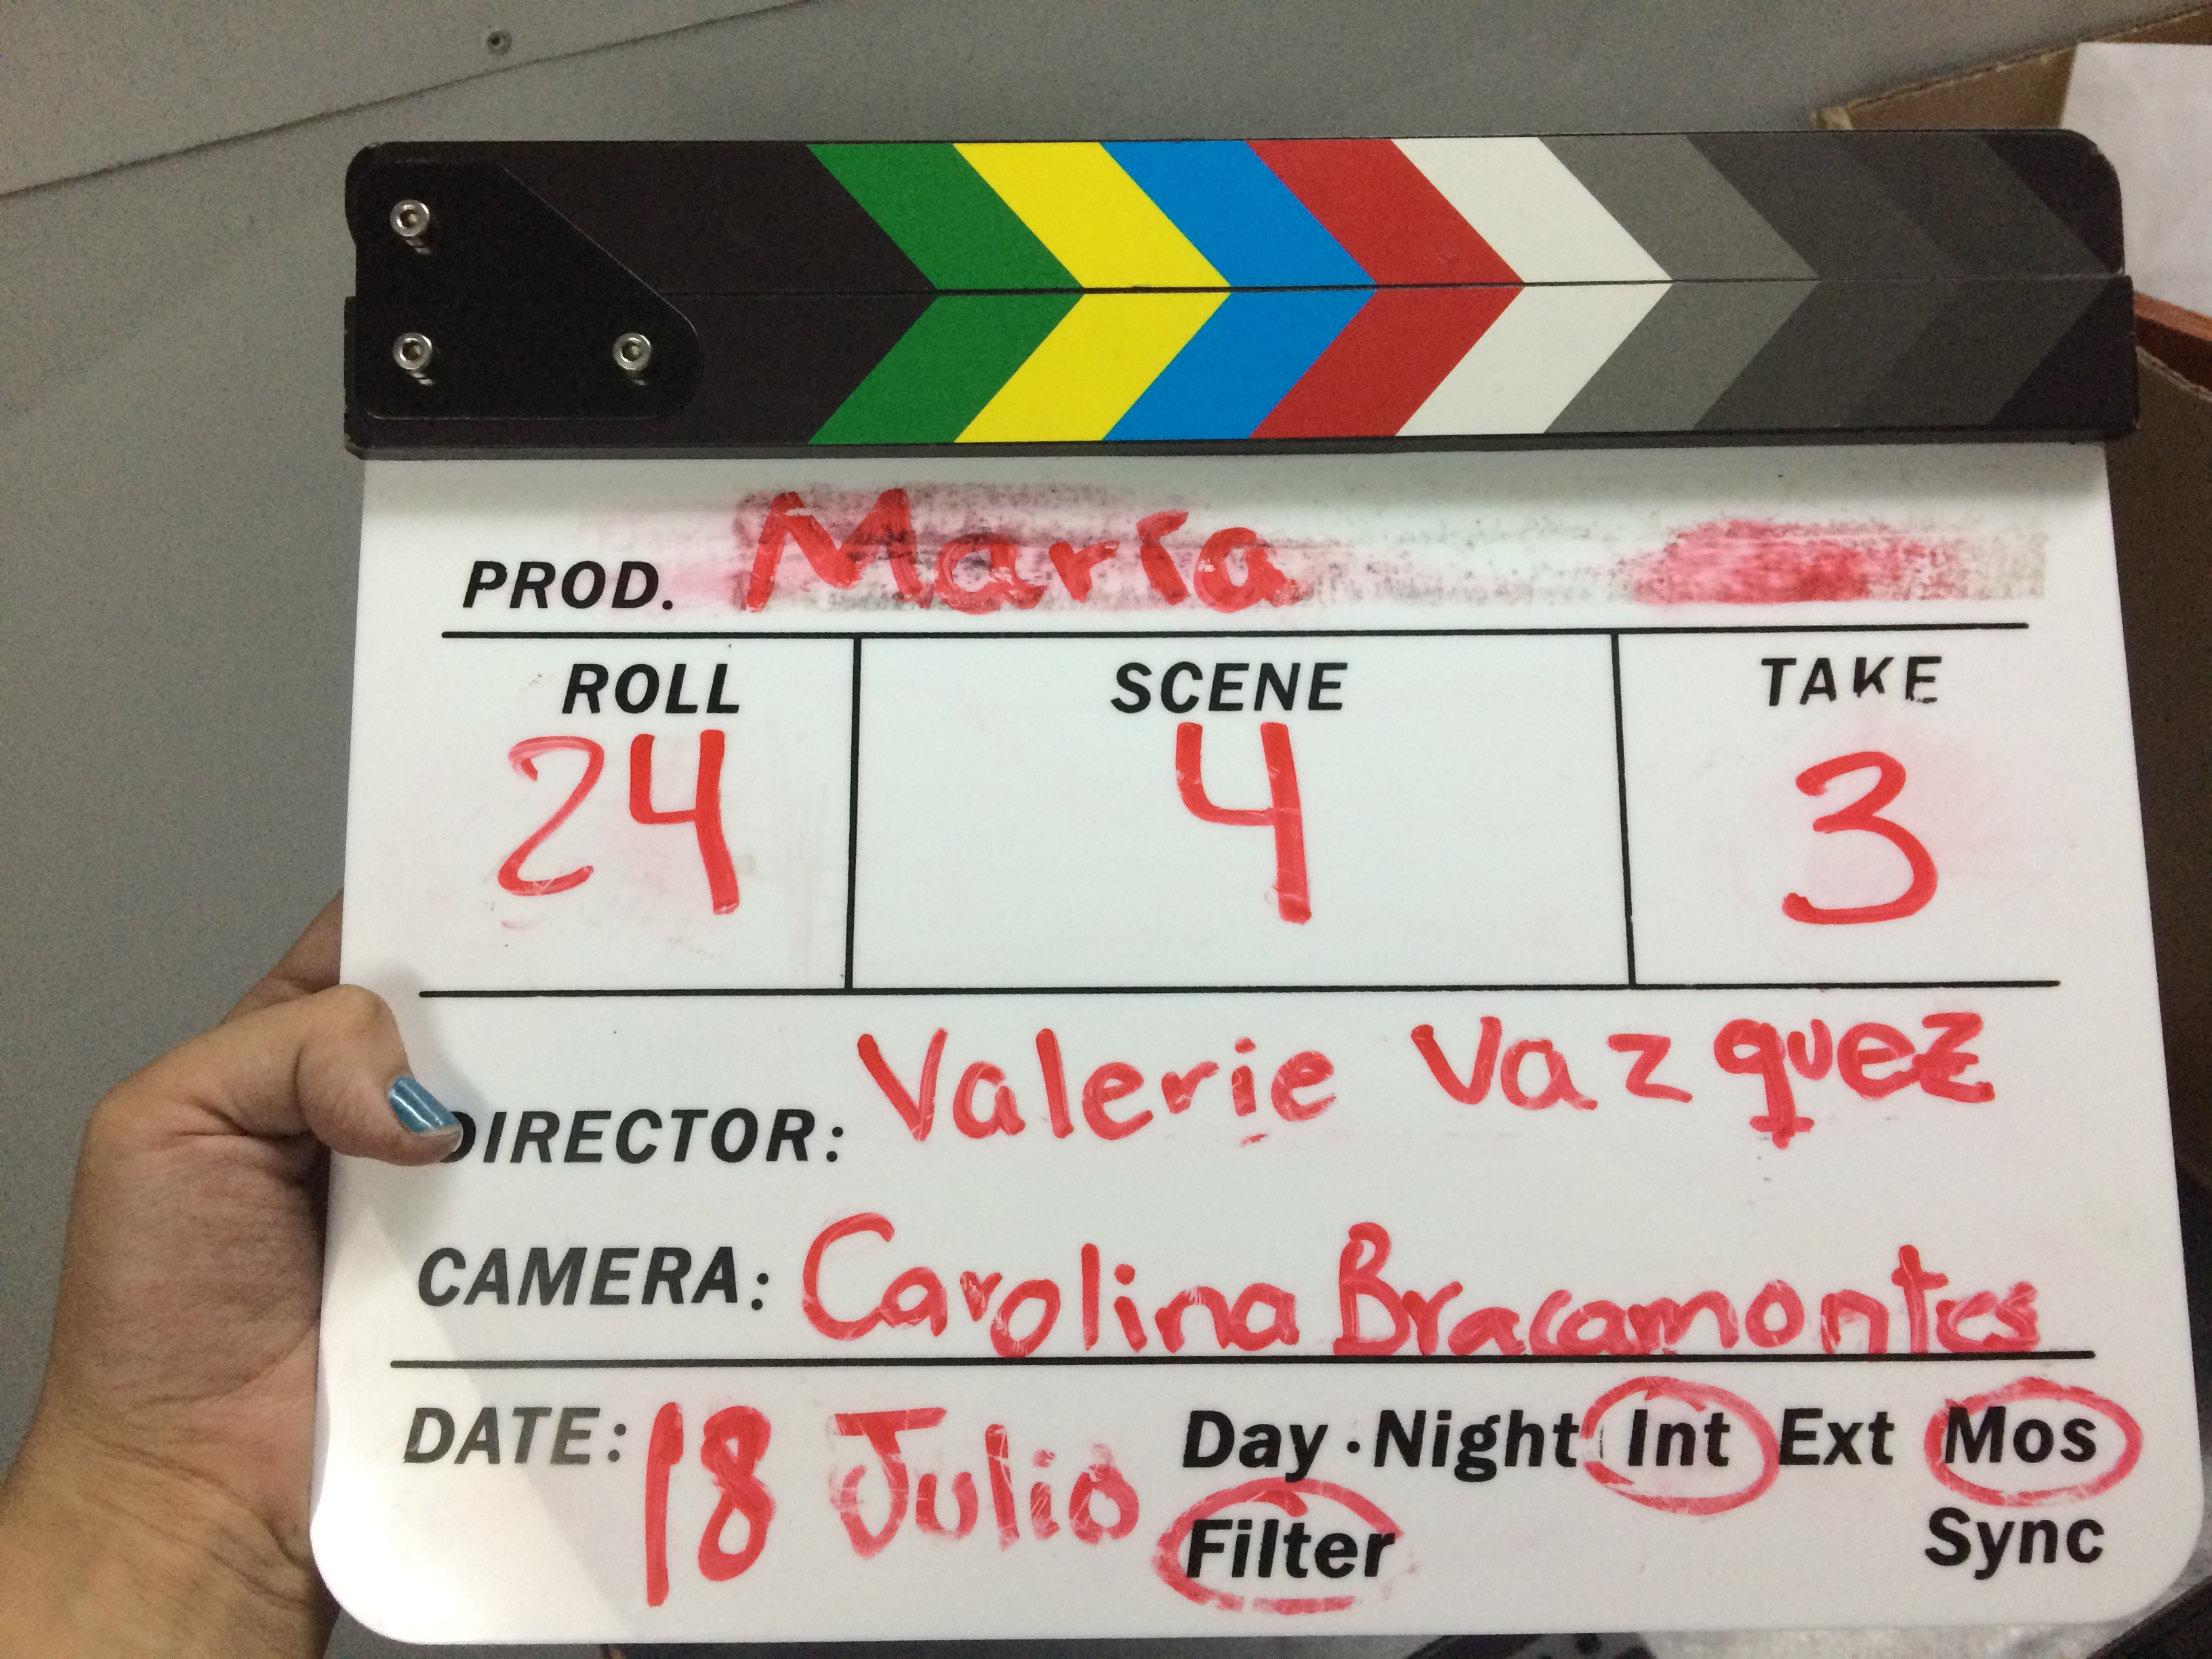 PROD. María
ROLL SCENE TAKE
24 4 3
DIRECTOR: Valerie Vazquez
CAMERA: Carolina Bracamontes
DATE: 18 Julio Day · Night Int Ext Mos
Filter Sync